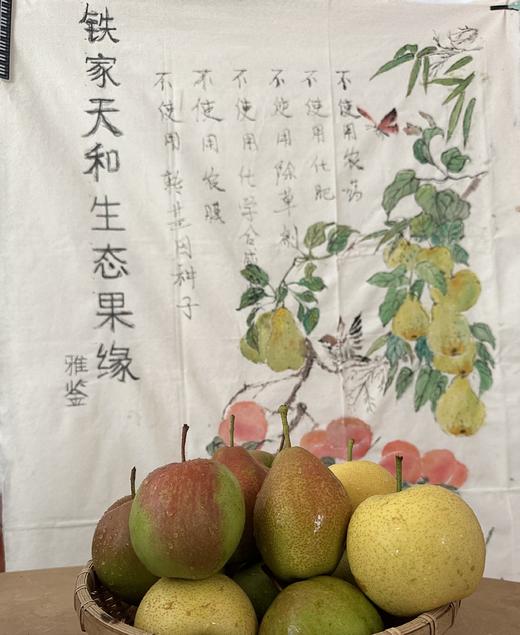 不使用农药
不使用化肥
不使用除草剂
不使用化学合成
不使用农膜
不使用转基因种子
铁家天和生态果缘
雅鉴